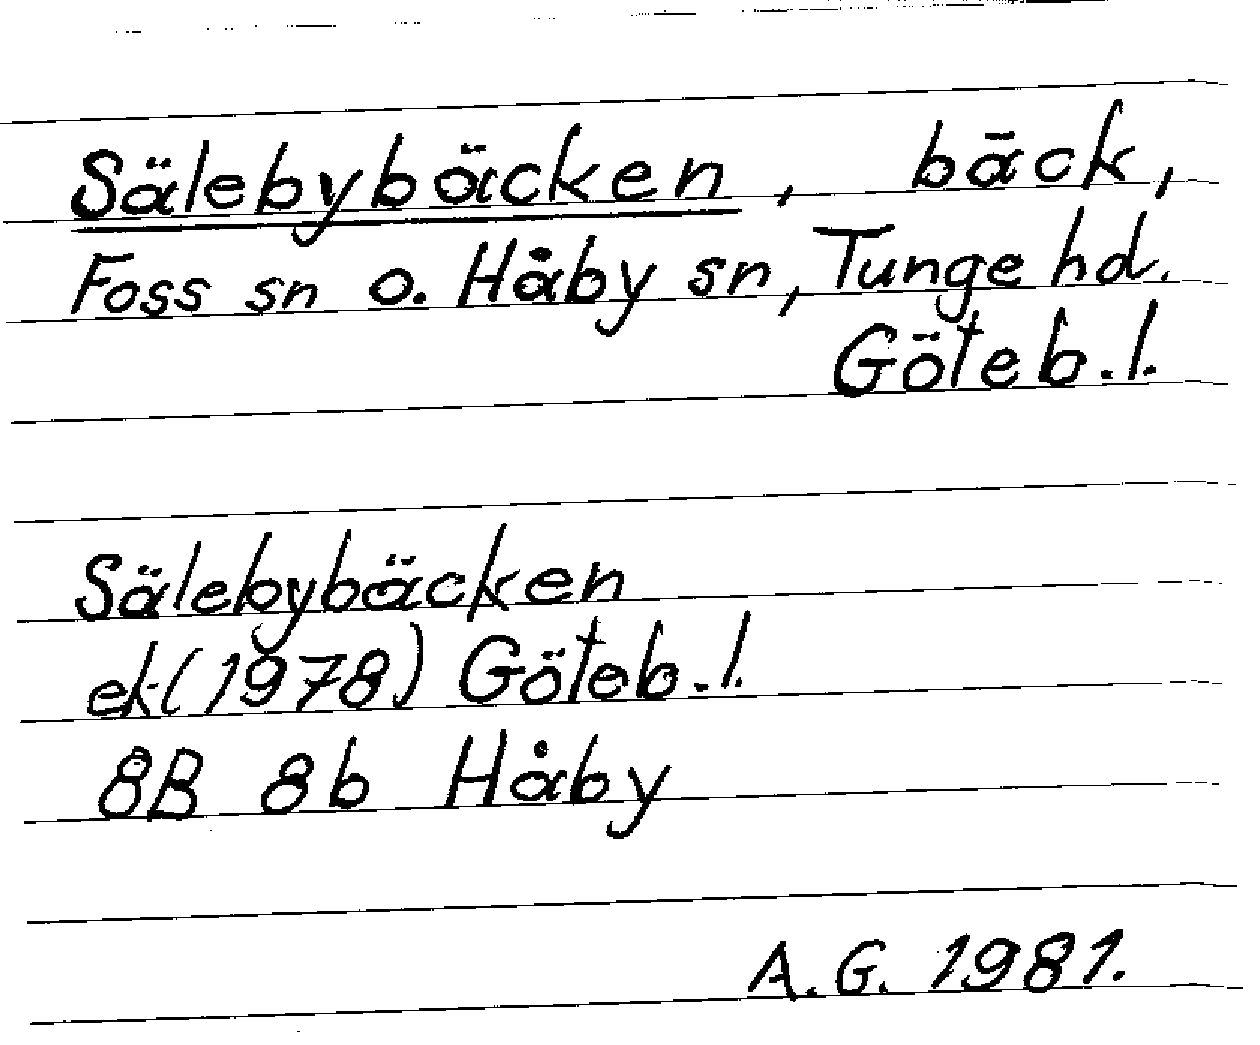 Sälebybäcken, bäck,
Foss sn o. Håby sn, Tunge hd.
Göteb.l.
Sälebybäcken
ek(1978) Göteb.l.
8B 8b Håby
A.G. 1981.